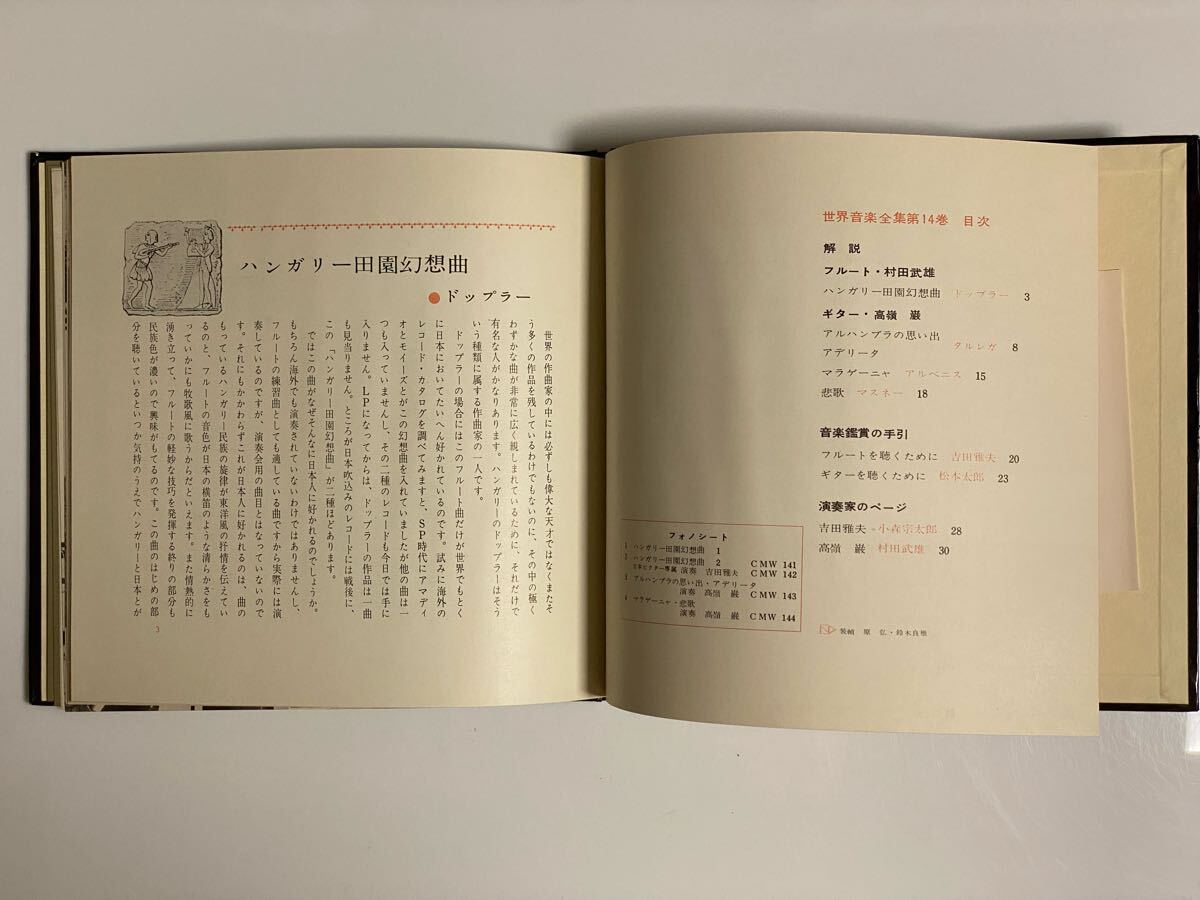 世界音楽全集第14巻 目次
解説
フルート・村田武雄
ハンガリー田園幻想曲 ドップラー 3
ギター・高嶺 巌
アルハンブラの思い出
アデリータ
タルレガ 8
マラゲーニャ アルベニス 15
悲歌 マスネー 18
音楽鑑賞の手引
フルートを聴くために 吉田雅夫 20
ギターを聴くために 松本太郎 23
演奏家のページ
吉田雅夫 小森宗太郎 28
高嶺 巌 村田武雄 30
フォノシート
1 ハンガリー田園幻想曲 1
2 ハンガリー田園幻想曲 2 CMW 141
日本ビクター専属 演奏 吉田雅夫 CMW 142
3 アルハンブラの思い出・アデリータ
演奏 高嶺 巌 CMW 143
4 マラゲーニャ・悲歌
演奏 高嶺 巌 CMW 144
装幀 原 弘・鈴木良雄
ハンガリー田園幻想曲
●ドップラー
世界の作曲家の中には必ずしも偉大な天才ではなくまたそ
う多くの作品を残しているわけでもないのに、その中の極く
わずかな曲が非常に広く親しまれているために、それだけで
有名な人がかなりあります。ハンガリーのドップラーはそう
いう種類に属する作曲家の一人です。
ドップラーの場合にはこのフルート曲だけが世界でもとく
に日本においてたいへん好かれているのです。試みに海外の
レコード・カタログを調べてみますと、SP時代にアマディ
オとモイーズとがこの幻想曲を入れていましたが他の曲は一
つも入っていませんし、その二種のレコードも今日では手に
入りません。LPになってからは、ドップラーの作品は一曲
も見当りません。ところが日本吹込みのレコードには戦後に、
この「ハンガリー田園幻想曲」が二種ほどあります。
ではこの曲がなぜそんなに日本人に好かれるのでしょうか。
もちろん海外でも演奏されていないわけではありませんし、
フルートの練習曲としても適している曲ですから実際には演
奏しているのですが、演奏会用の曲目とはなっていないので
す。それにもかかわらずこれが日本人に好かれるのは、曲の
もっているハンガリー民族の旋律が東洋風の抒情を伝えてい
るのと、フルートの音色が日本の横笛のような清らかさをも
っていかにも牧歌風に歌うからだといえます。また情熱的に
湧き立って、フルートの軽妙な技巧を発揮する終りの部分も
民族色が濃いので興味がもてるのです。この曲のはじめの部
分を聴いているといつか気持のうえでハンガリーと日本とが
3